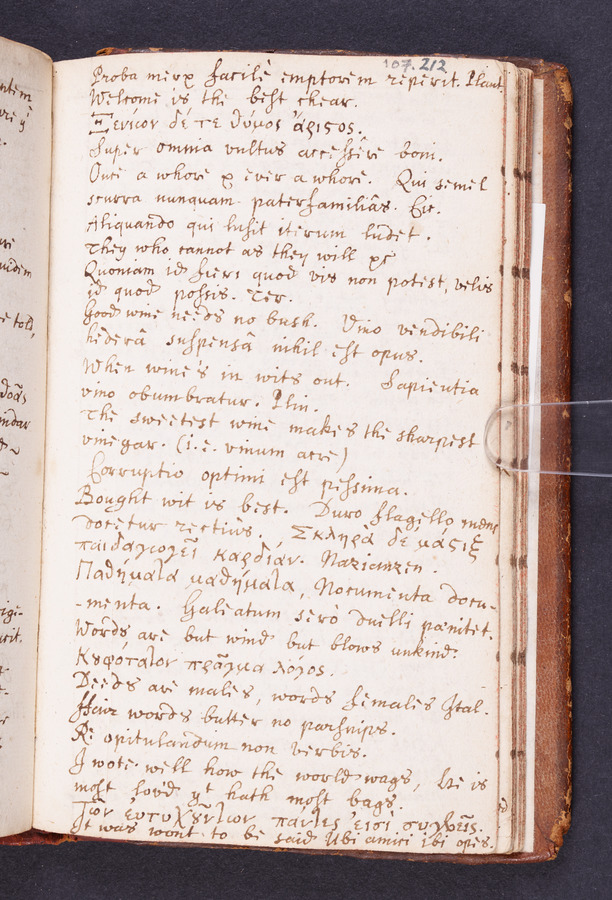 107. 212
Proba merx facilè emptorem reperit. Plaut.
Welcome is the best chear.
Ξενίων δέ τε θύμος ἄριςος.
Super omnia vultus accessêre boni.
Once a whore & ever a whore. Qui semel
scurra nunquam paterfamiliâs. Cic.
Aliquando qui lusit iterum ludet.
They who cannot as they will &c
Quoniam id fieri quod vis non potest, velis
id quod possis. Ter.
Good wine needs no bush. Vino vendibili
hederâ suspensâ nihil est opus.
When wine's in wits out. Sapientia
vino obumbratur. Plin.
The sweetest wine makes the sharpest
vinegar. (i.e. vinum acre)
Corruptio optimi est pessima.
Bought wit is best. Duro flagello mens
docetur rectiùs. Σκληρὰ δὲ μάςιξ
παιδαγωγεῖ καρδίαν. Nazianzen.
Παθήματα μαθήματα, Nocumenta docu-
-menta. Galeatum serò duelli pænitet.
Words are but wind but blows unkind.
Κȣφόταϊον πρᾶγμα λόγος.
Deeds are males, words females Ital.
Fair words butter no parsnips.
Re opitulandum non verbis.
I wote well how the world wags, he is
most lov'd yt hath most bags.
Τῶν ἐυτυχȣ́ντων πάντες ἐισὶ συγγενεῖς.
It was wont to be said Ubi amici ibi opes.